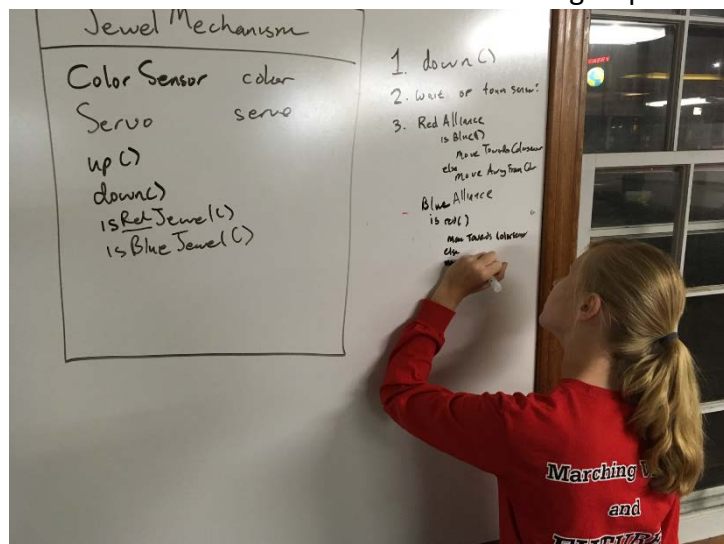 Jewel Mechanism
Color Sensor color
Servo servo
up()
down()
isRedJewel()
isBlueJewel()
1. down()
2. Wait or team sensor?
3. Red Alliance
is Blue()
Move Towards Colorsensor
else
Move Away From Color
Blue Alliance
is red()
Move Towards Colorsensor
else
Marching
and
FUTURE